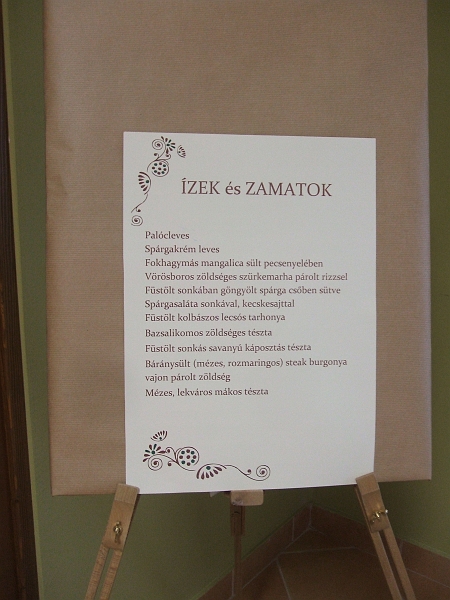 ÍZEK és ZAMATOK
Palócleves
Spárgakrém leves
Fokhagymás mangalica sült pecsenyelében
Vörösboros zöldséges szürkemarha párolt rizzsel
Füstölt sonkában göngyölt spárga csőben sütve
Spárgasaláta sonkával, kecskesajttal
Füstölt kolbászos lecsós tarhonya
Bazsalikomos zöldséges tészta
Füstölt sonkás savanyú káposztás tészta
Báránysült (mézes, rozmaringos) steak burgonya
vajon párolt zöldség
Mézes, lekváros mákos tészta